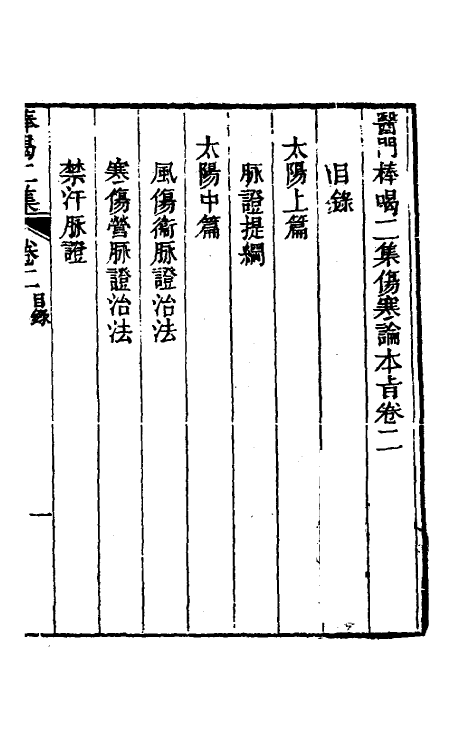 醫門棒喝二集傷寒論本旨卷二
目錄
太陽上篇
脉證提綱
太陽中篇
風傷衞脉證治法
寒傷營脉證治法
禁汗脉證
棒喝二集 卷二 目錄 一